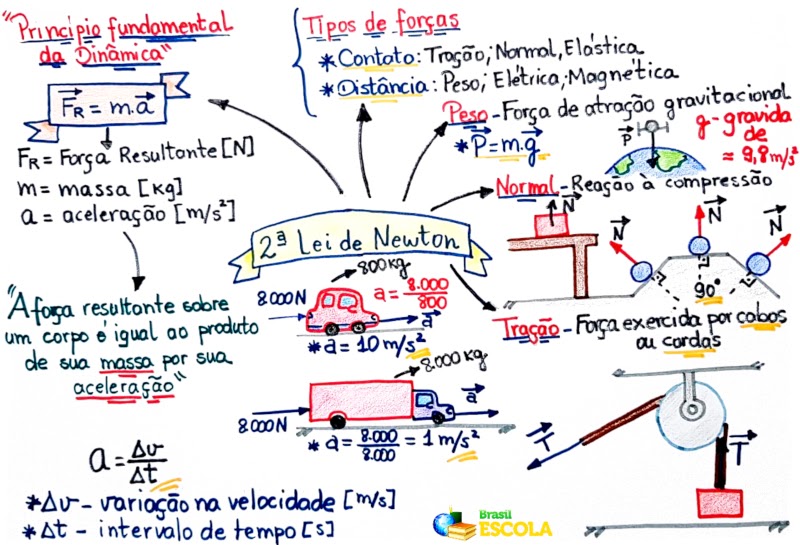 "Princípio fundamental
da Dinâmica"
F_R = m.a
F_R = Força Resultante [N]
m = massa [kg]
a = aceleração [m/s²]
"A força resultante sobre
um corpo é igual ao produto
de sua massa por sua
aceleração"
a = Δv/Δt
*Δv - variação na velocidade [m/s]
*Δt - intervalo de tempo [s]
Tipos de forças
*Contato: Tração, Normal, Elástica
*Distância: Peso, Elétrica, Magnética
Peso - Força de atração gravitacional
*P = m.g
P
g - gravida
de
≈ 9,8 m/s²
Normal - Reação à compressão
N
N
N
N
90°
2ª Lei de Newton
800 kg
8.000N
a = 8.000/800
a
*a = 10 m/s²
8.000 kg
8.000N
a
*a = 8.000/8.000 = 1 m/s²
Tração - Força exercida por cabos
ou cordas
T
T
Brasil
ESCOLA